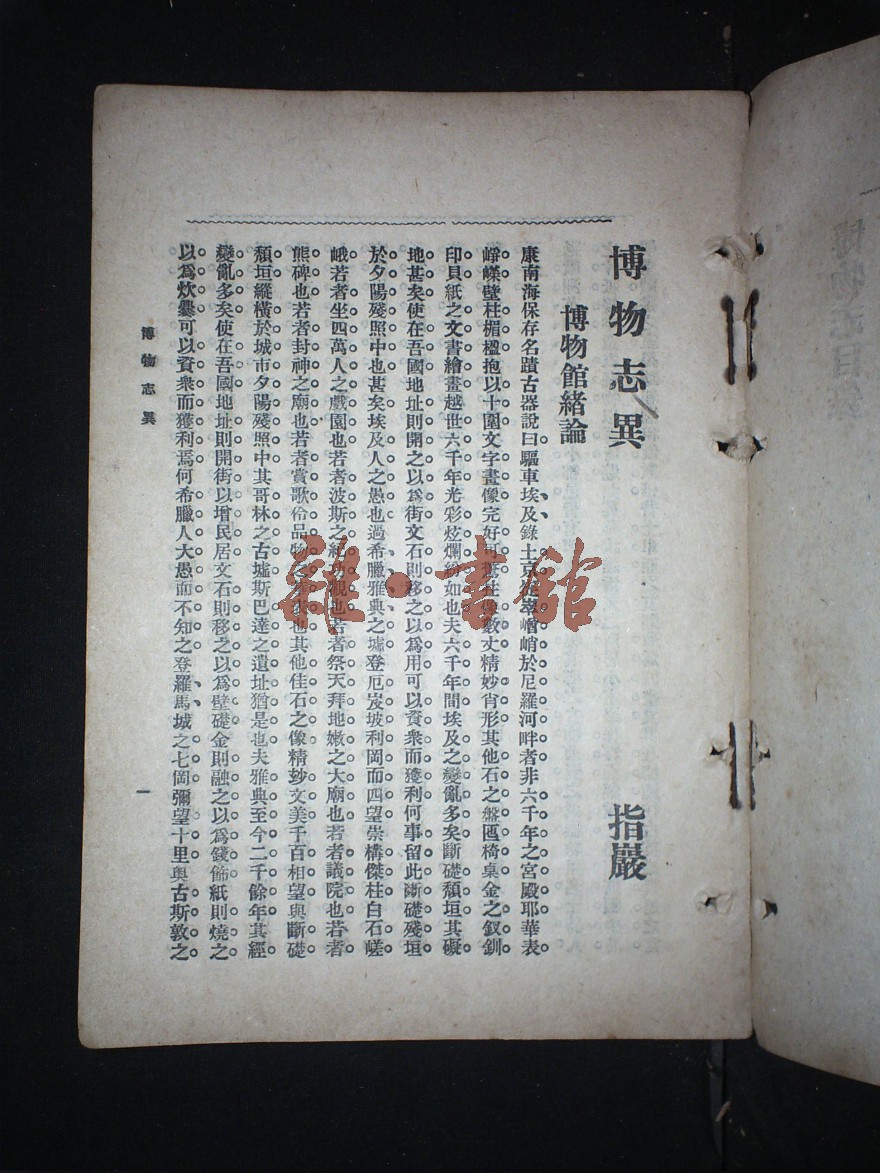 博物志異
指嚴
博物館緒論
康南海保存名蹟古器說曰驅車埃及錄士京
崢嶸壁柱楣楹抱以十圍文字畫像完好可
數丈精妙肖形其他石之盤匜椅桌金之釵釧
印貝紙之文書繪畫越世六千年光彩炫爛紛如也夫六千年間埃及之變亂多矣斷礎頹垣其礙
地甚矣使在吾國地址則開之以爲街文石則移之以爲用可以資衆而獲利何事留此斷礎殘垣
於夕陽殘照中也甚矣埃及人之愚也過希臘雅典之墟登厄岌坡利岡而四望崇構傑柱白石嵯
峨若者坐四萬人之戲園也若者波斯之
觀也若者祭天拜地嫩之大廟也若者議院也若者
熊碑也若者封神之廟也若者賞歌伶品物之
也其他佳石之像精妙文美千百相望與斷礎
頹垣縱橫於城市夕陽殘照中其哥林之古墟斯巴達之遺址猶是也夫雅典至今二千餘年其經
變亂多矣使在吾國地址則開街以增民居文石則移之以爲壁礎金則融之以爲錢飾紙則燒之
以爲炊爨可以資衆而獲利焉何希臘人大愚而不知之登羅馬城之七岡彌望十里與古斯敦之
博物志異
一
雜·書館
博物志目錄